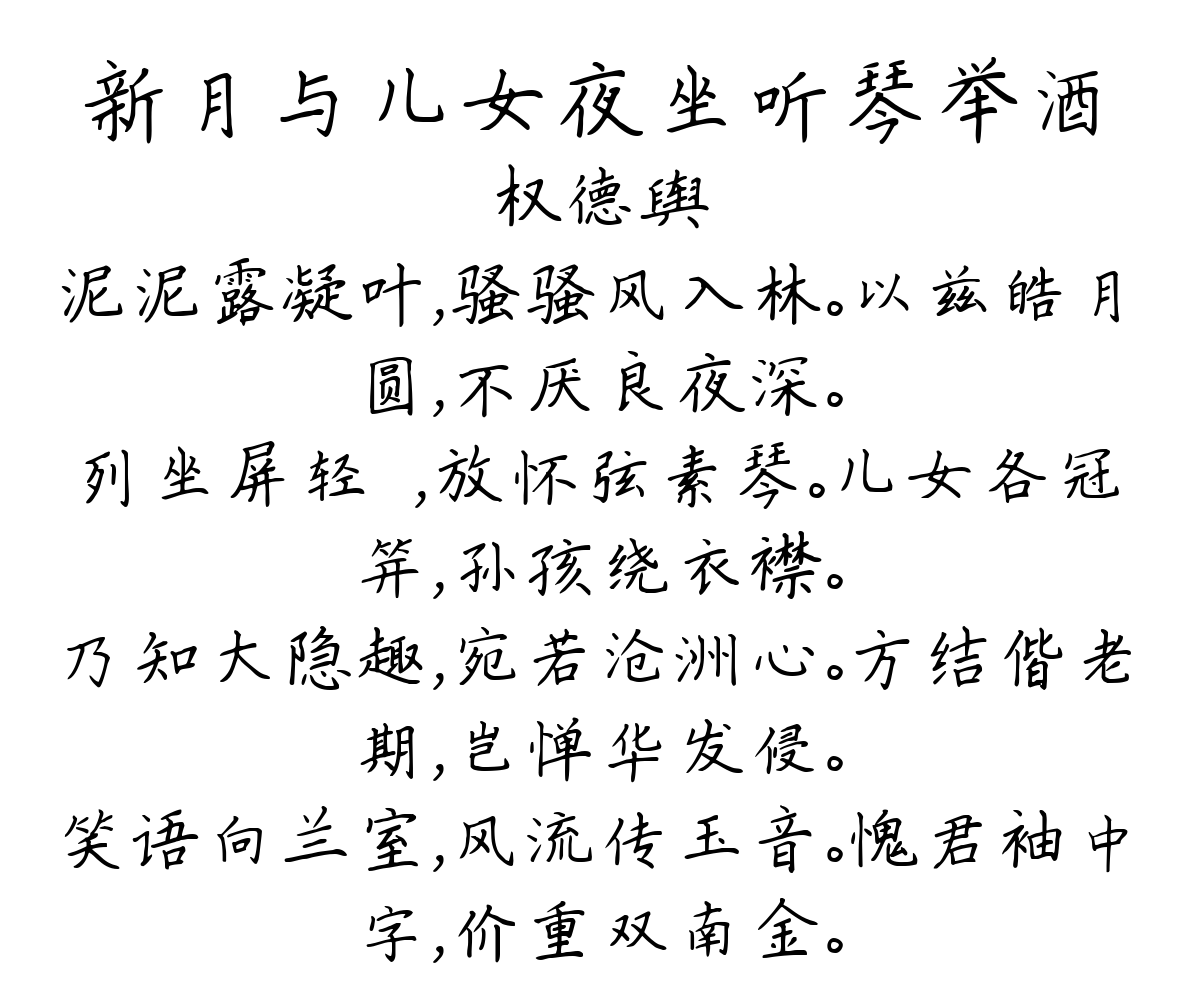 新月与儿女夜坐听琴举酒
权德舆
泥泥露凝叶,骚骚风入林。以兹皓月
圆,不厌良夜深。
列坐屏轻 ,放怀弦素琴。儿女各冠
笄,孙孩绕衣襟。
乃知大隐趣,宛若沧洲心。方结偕老
期,岂惮华发侵。
笑语向兰室,风流传玉音。愧君袖中
字,价重双南金。